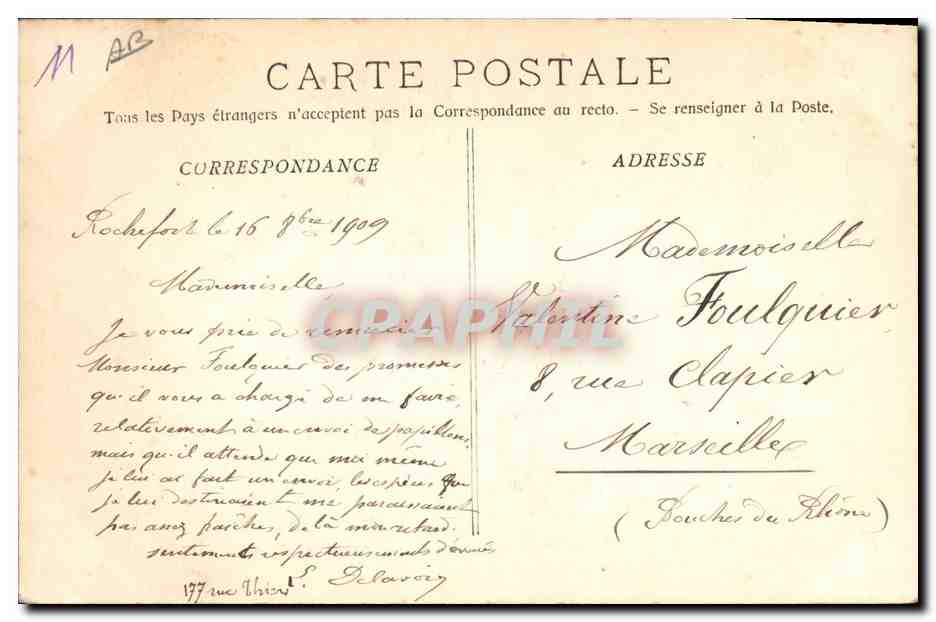 11 AB
CARTE POSTALE
Tous les Pays étrangers n'acceptent pas la Correspondance au recto. – Se renseigner à la Poste.
CORRESPONDANCE
Rochefort le 16 8bre 1909
Mademoiselle,
Je vous prie de remercier
Monsieur Foulquier des promesses
qu'il vous a chargé de me faire,
relativement à un envoi de papillons,
mais qu'il attende que moi même
je lui ai fait un envoi, les espèces que
je lui destinaient me paraissaient
pas assez fraîches, de là mon retard.
sentiments respectueusements
177 rue Thiers
ADRESSE
Mademoiselle
Valentine Foulquier,
8, rue Clapier
Marseille
(Bouches du Rhône)
CPAPHIL